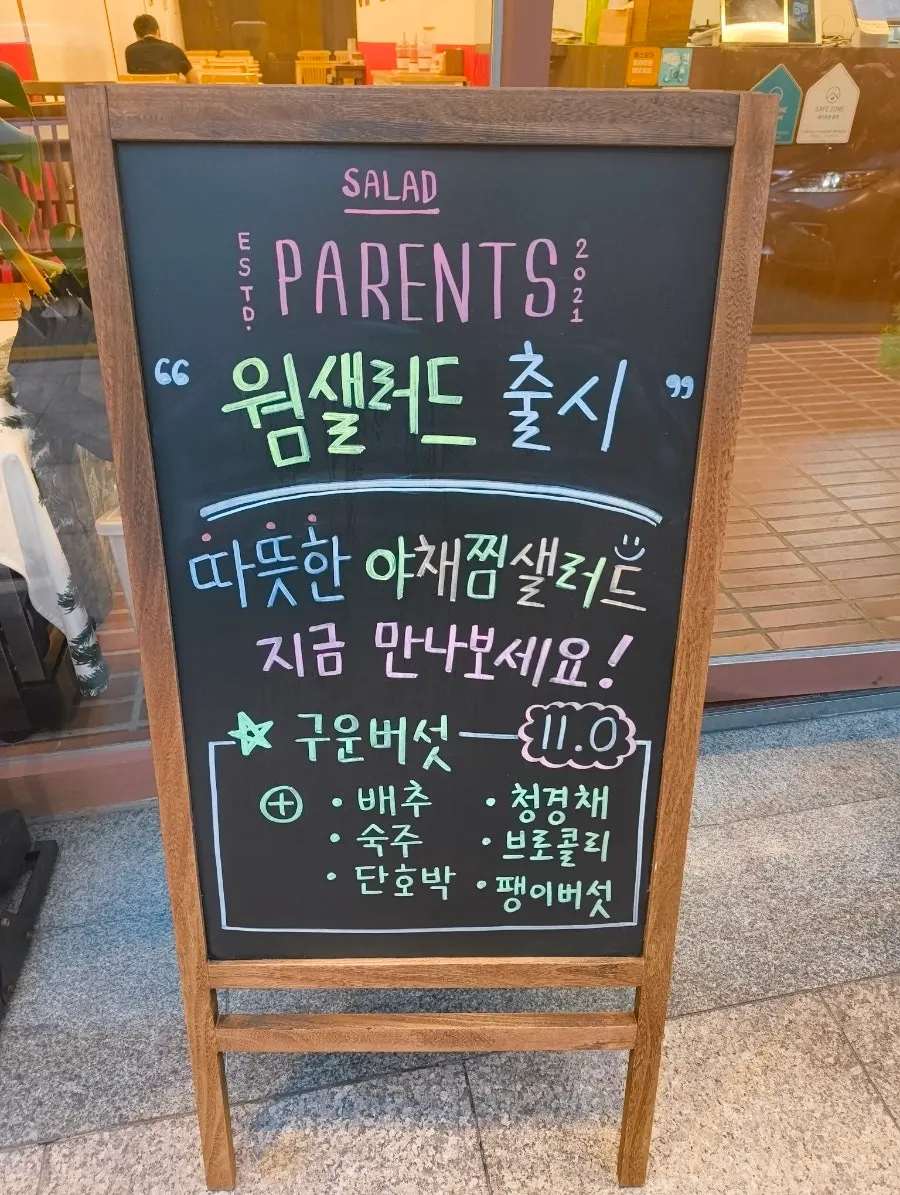 SALAD
ESTD. PARENTS 2021
“ 웜샐러드 출시 ”
따뜻한 야채찜샐러드
지금 만나보세요!
구운버섯 11.0
+ · 배추 · 청경채
· 숙주 · 브로콜리
· 단호박 · 팽이버섯
SAFE ZONE